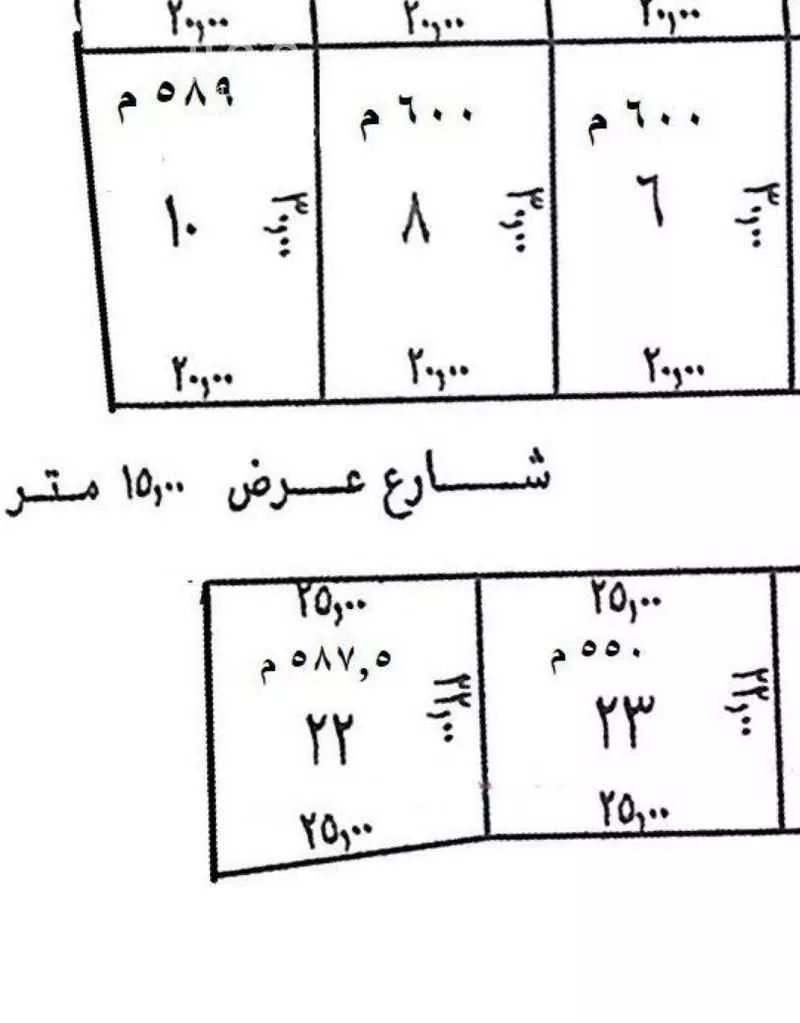 ٢٠,٠٠ ٢٠,٠٠ ٢٠,٠٠
٦٠٠ م ٦٠٠ م ٥٨٩ م
٣٠,٠٠ ٦ ٣٠,٠٠ ٨ ٣٠,٠٠ ١٠
٢٠,٠٠ ٢٠,٠٠ ٢٠,٠٠
شــارع عــرض ١٥,٠٠ متــر
٢٥,٠٠ ٢٥,٠٠
٥٥٠ م ٥٨٧,٥ م
٢٢,٠٠ ٢٣ ٢٢,٠٠ ٢٢
٢٥,٠٠ ٢٥,٠٠